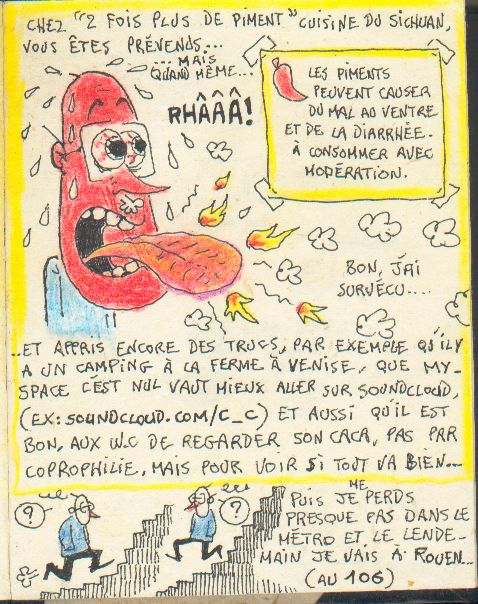 CHEZ "2 FOIS PLUS DE PIMENT" CUISINE DU SICHUAN,
VOUS ÊTES PRÉVENUS...
... MAIS
QUAND MÊME...
RHÂÂÂ!
LES PIMENTS
PEUVENT CAUSER
DU MAL AU VENTRE
ET DE LA DIARRHÉE.
À CONSOMMER AVEC
MODÉRATION.
BON, J'AI
SURVÉCU....
..ET APPRIS ENCORE DES TRUCS, PAR EXEMPLE QU'IL Y
A UN CAMPING À LA FERME À VENISE, QUE MY-
SPACE C'EST NUL VAUT MIEUX ALLER SUR SOUNDCLOUD,
(EX: SOUNDCLOUD.COM/C_C) ET AUSSI QU'IL EST
BON, AUX W.C DE REGARDER SON CACA, PAS PAR
COPROPHILIE, MAIS POUR VOIR SI TOUT VA BIEN...
?
?
PUIS JE ME PERDS
PRESQUE PAS DANS LE
MÉTRO ET LE LENDE-
MAIN JE VAIS À ROUEN...
(AU 106)